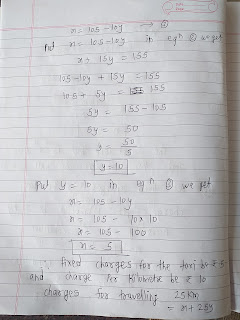 x = 105 - 10y → ①
Put x = 105 - 10y in eqn ② we get
x + 15y = 155
105 - 10y + 15y = 155
105 + 5y = 155
5y = 155 - 105
5y = 50
y = 50/5
y = 10
Put y = 10 in eqn ① we get
x = 105 - 10y
x = 105 - 10×10
x = 105 - 100
x = 5
∴ fixed charges for the taxi be ₹ 5
and charge per kilometre be ₹ 10
charges for travelling 25Km
= x + 25y